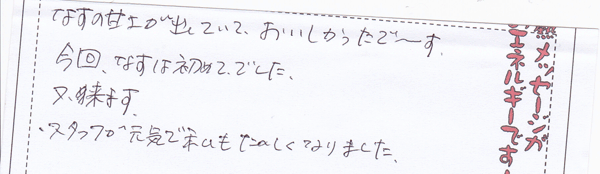 なすの甘土が出ていて、おいしかったで〜す。
今回、なすは初めてでした。
又、来ます。
・スタッフが元気で私もたのしくなりました。
熱メッセージが
エネルギーです